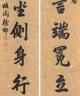 言端冕立
坐側身行